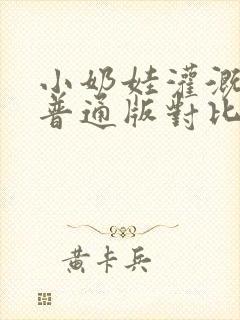 小奶娃灌溉
普通版對比
黄卡兵